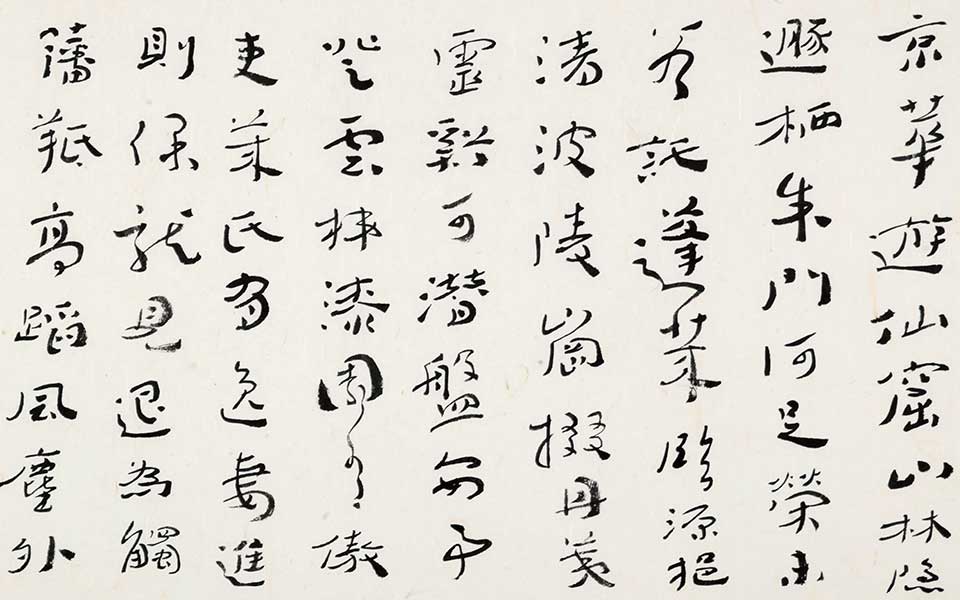 京華遊仙窟山林隱
遯栖朱門何足榮未
若託蓬萊臨源挹
清波陵崗掇丹荑
靈谿可潛盤安事
登雲梯漆園有傲
吏萊氏有逸妻進
則保龍見退為觸
藩羝高蹈風塵外